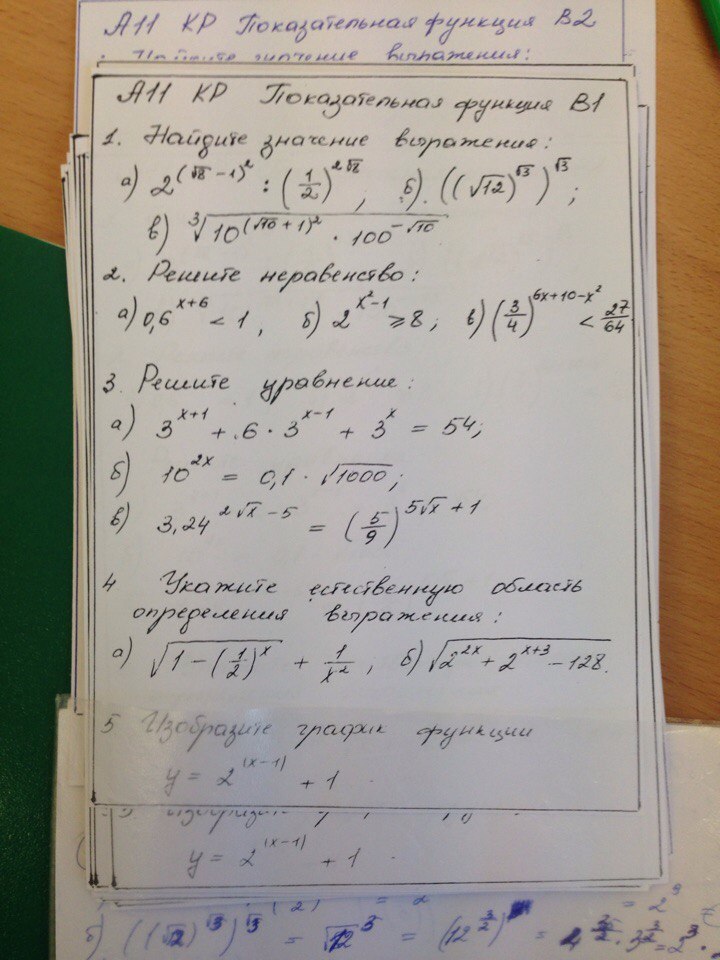 А11 КР Показательная функция В2
Найдите значение выражения:
А11 КР Показательная функция В1
1. Найдите значение выражения:
а) 2^((√8 − 1)²) : (1/2)^(2√8), б). ((√12)^√3)^√3;
в) ∛(10^((√10+1)²) · 100^(−√10))
2. Решите неравенство:
а) 0,6^(x+6) < 1, б) 2^(x²−1) ≥ 8; в) (3/4)^(6x+10−x²) < 27/64
3. Решите уравнение:
а) 3^(x+1) + 6 · 3^(x−1) + 3^x = 54;
б) 10^(2x) = 0,1 · √1000;
в) 3,24^(2√x − 5) = (5/9)^(5√x + 1)
4 Укажите естественную область
определения выражения:
а) √(1 − (1/2)^x) + 1/x², б) √(2^(2x) + 2^(x+3) − 128).
5 Изобразите график функции
y = 2^|x−1| + 1
y = 2^|x−1| + 1
б) ((√12)^√3)^√3 = √12³ = (12^(3/2)) =